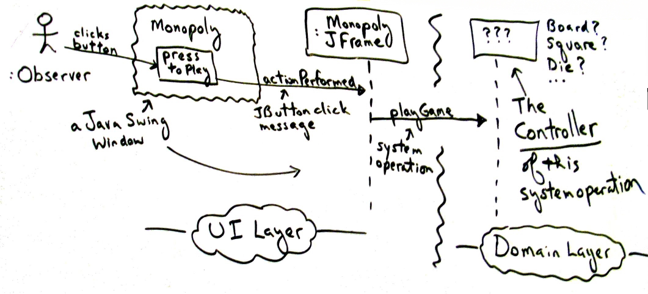 clicks
button
:Observer
Monopoly
press
to Play
a Java Swing
Window
actionPerformed
JButton click
message
:Monopoly
JFrame
playGame
system
operation
???
Board?
Square?
Die?
...
The
Controller
of this
system operation
UI Layer
Domain Layer